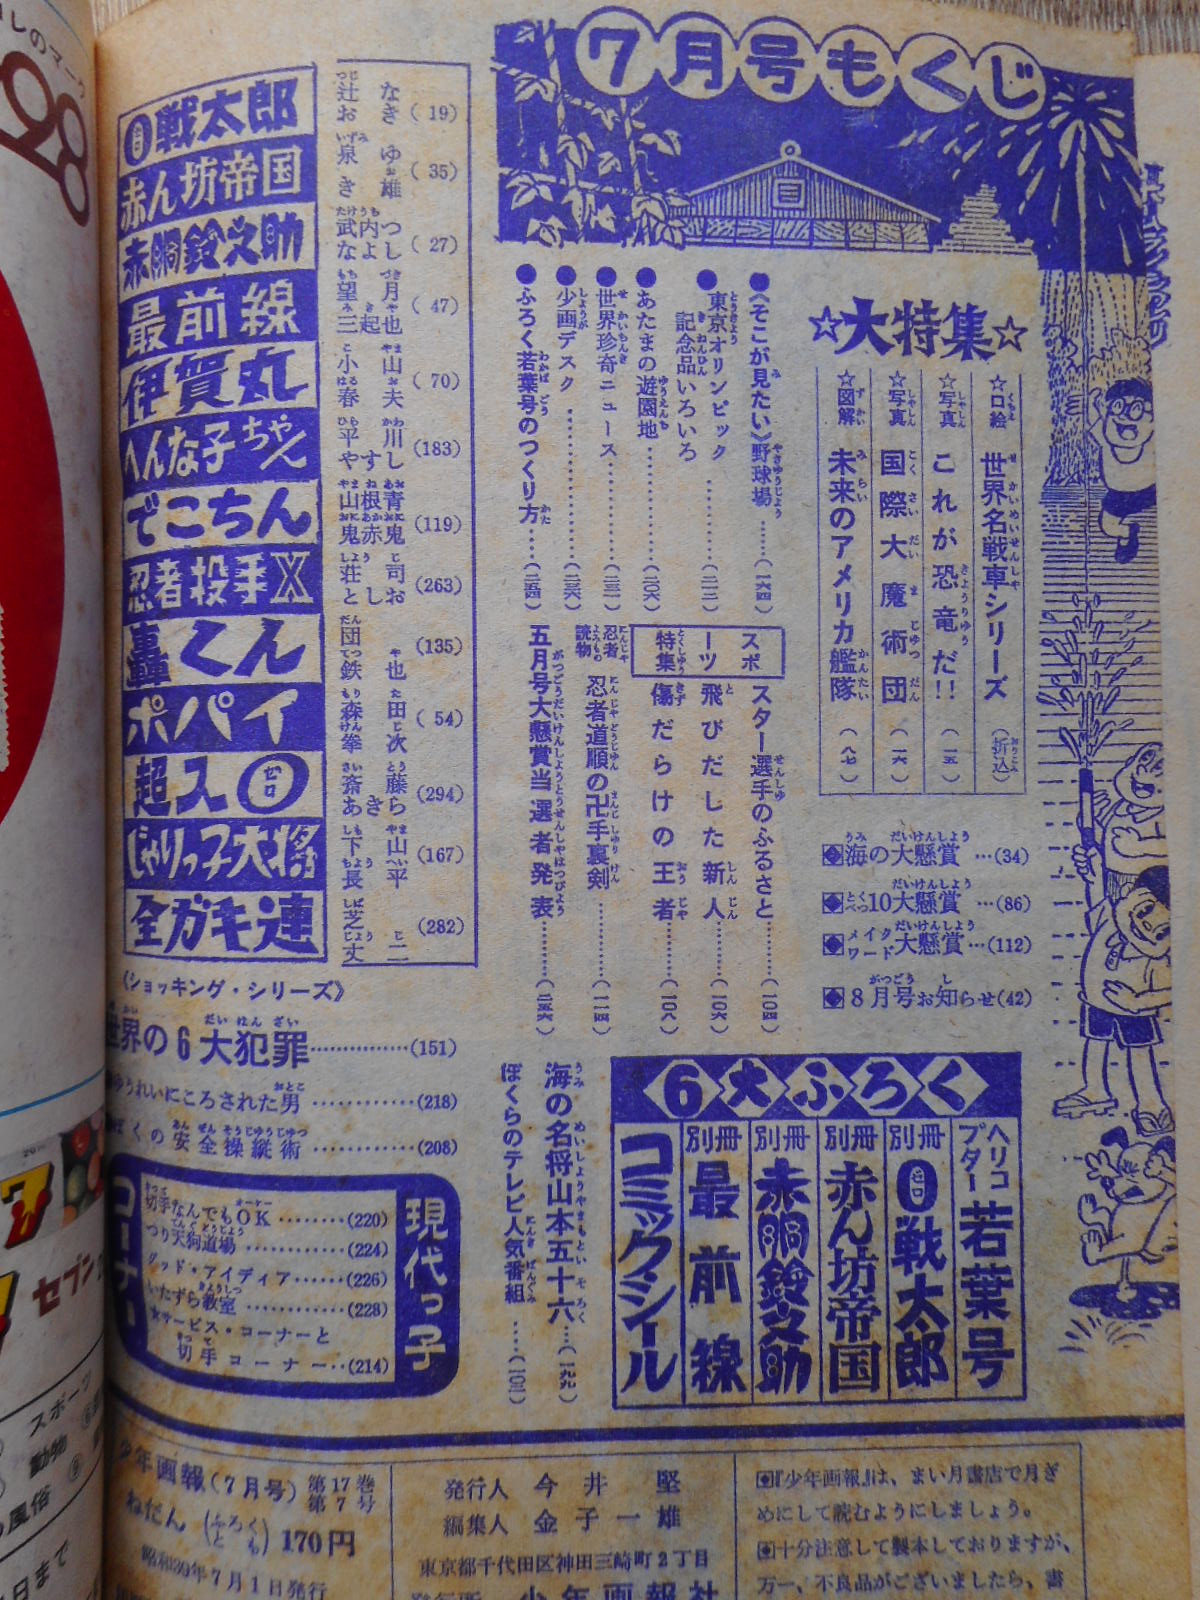 7月号もくじ
☆大特集☆
☆口絵 世界名戦車シリーズ (折込)
☆写真 これが恐竜だ!! (一五)
☆写真 国際大魔術団 (一六)
☆図解 未来のアメリカ艦隊 (八七)
●《そこが見たい》野球場……(一六四)
●東京オリンピック記念品いろいろ……(二一二)
●あたまの遊園地……(二〇六)
●世界珍奇ニュース……(二三二)
●少画デスク……(二三六)
●ふろく若葉号のつくり方……(二五四)
スポーツ特集
スター選手のふるさと……(一〇四)
飛びだした新人……(一〇六)
傷だらけの王者……(一〇八)
忍者読物 忍者道順の卍手裏剣……(一一四)
五月号大懸賞当選者発表……(二五六)
海の大懸賞…(34)
とくべつ10大懸賞…(86)
メイクワード大懸賞…(112)
8月号お知らせ(42)
0戦太郎 辻なおき (19)
赤ん坊帝国 泉ゆき雄 (35)
赤胴鈴之助 武内つなよし (27)
最前線 望月三起也 (47)
伊賀丸 小山春夫 (70)
へんな子ちゃん 平川やすし (183)
でこちん 山根青鬼 山根赤鬼 (119)
忍者投手X 荘司としお (263)
轟くん 団鉄也 (135)
ポパイ 森田拳次 (54)
超人0 斎藤あきら (294)
じゃりっ子大将 下山長平 (167)
全ガキ連 芝丈二 (282)
《ショッキング・シリーズ》
世界の6大犯罪……(151)
ゆうれいにころされた男……(218)
ぼくの安全操縦術……(208)
海の名将山本五十六…(一九九)
ぼくらのテレビ人気番組……(一〇二)
現代っ子コーナー
切手なんでもOK……(220)
つり天狗道場……(224)
グッド・アイディア……(226)
いたずら教室……(228)
★サービス・コーナーと
切手コーナー‥(214)
6大ふろく
ヘリコプター若葉号
別冊 0戦太郎
別冊 赤ん坊帝国
別冊 赤胴鈴之助
別冊 最前線
コミック・シール
少年画報(7月号)第17巻第7号
ねだん(ふろくとも)170円
昭和39年7月1日発行
発行人 今井堅
編集人 金子一雄
東京都千代田区神田三崎町2丁目
発行所 少年画報社
『少年画報』は、まい月書店で月ぎ
めにして読むようにしましょう。
十分注意して製本しておりますが、
万一、不良品がございましたら、書
セブン
スポーツ
動物
風俗
日まで